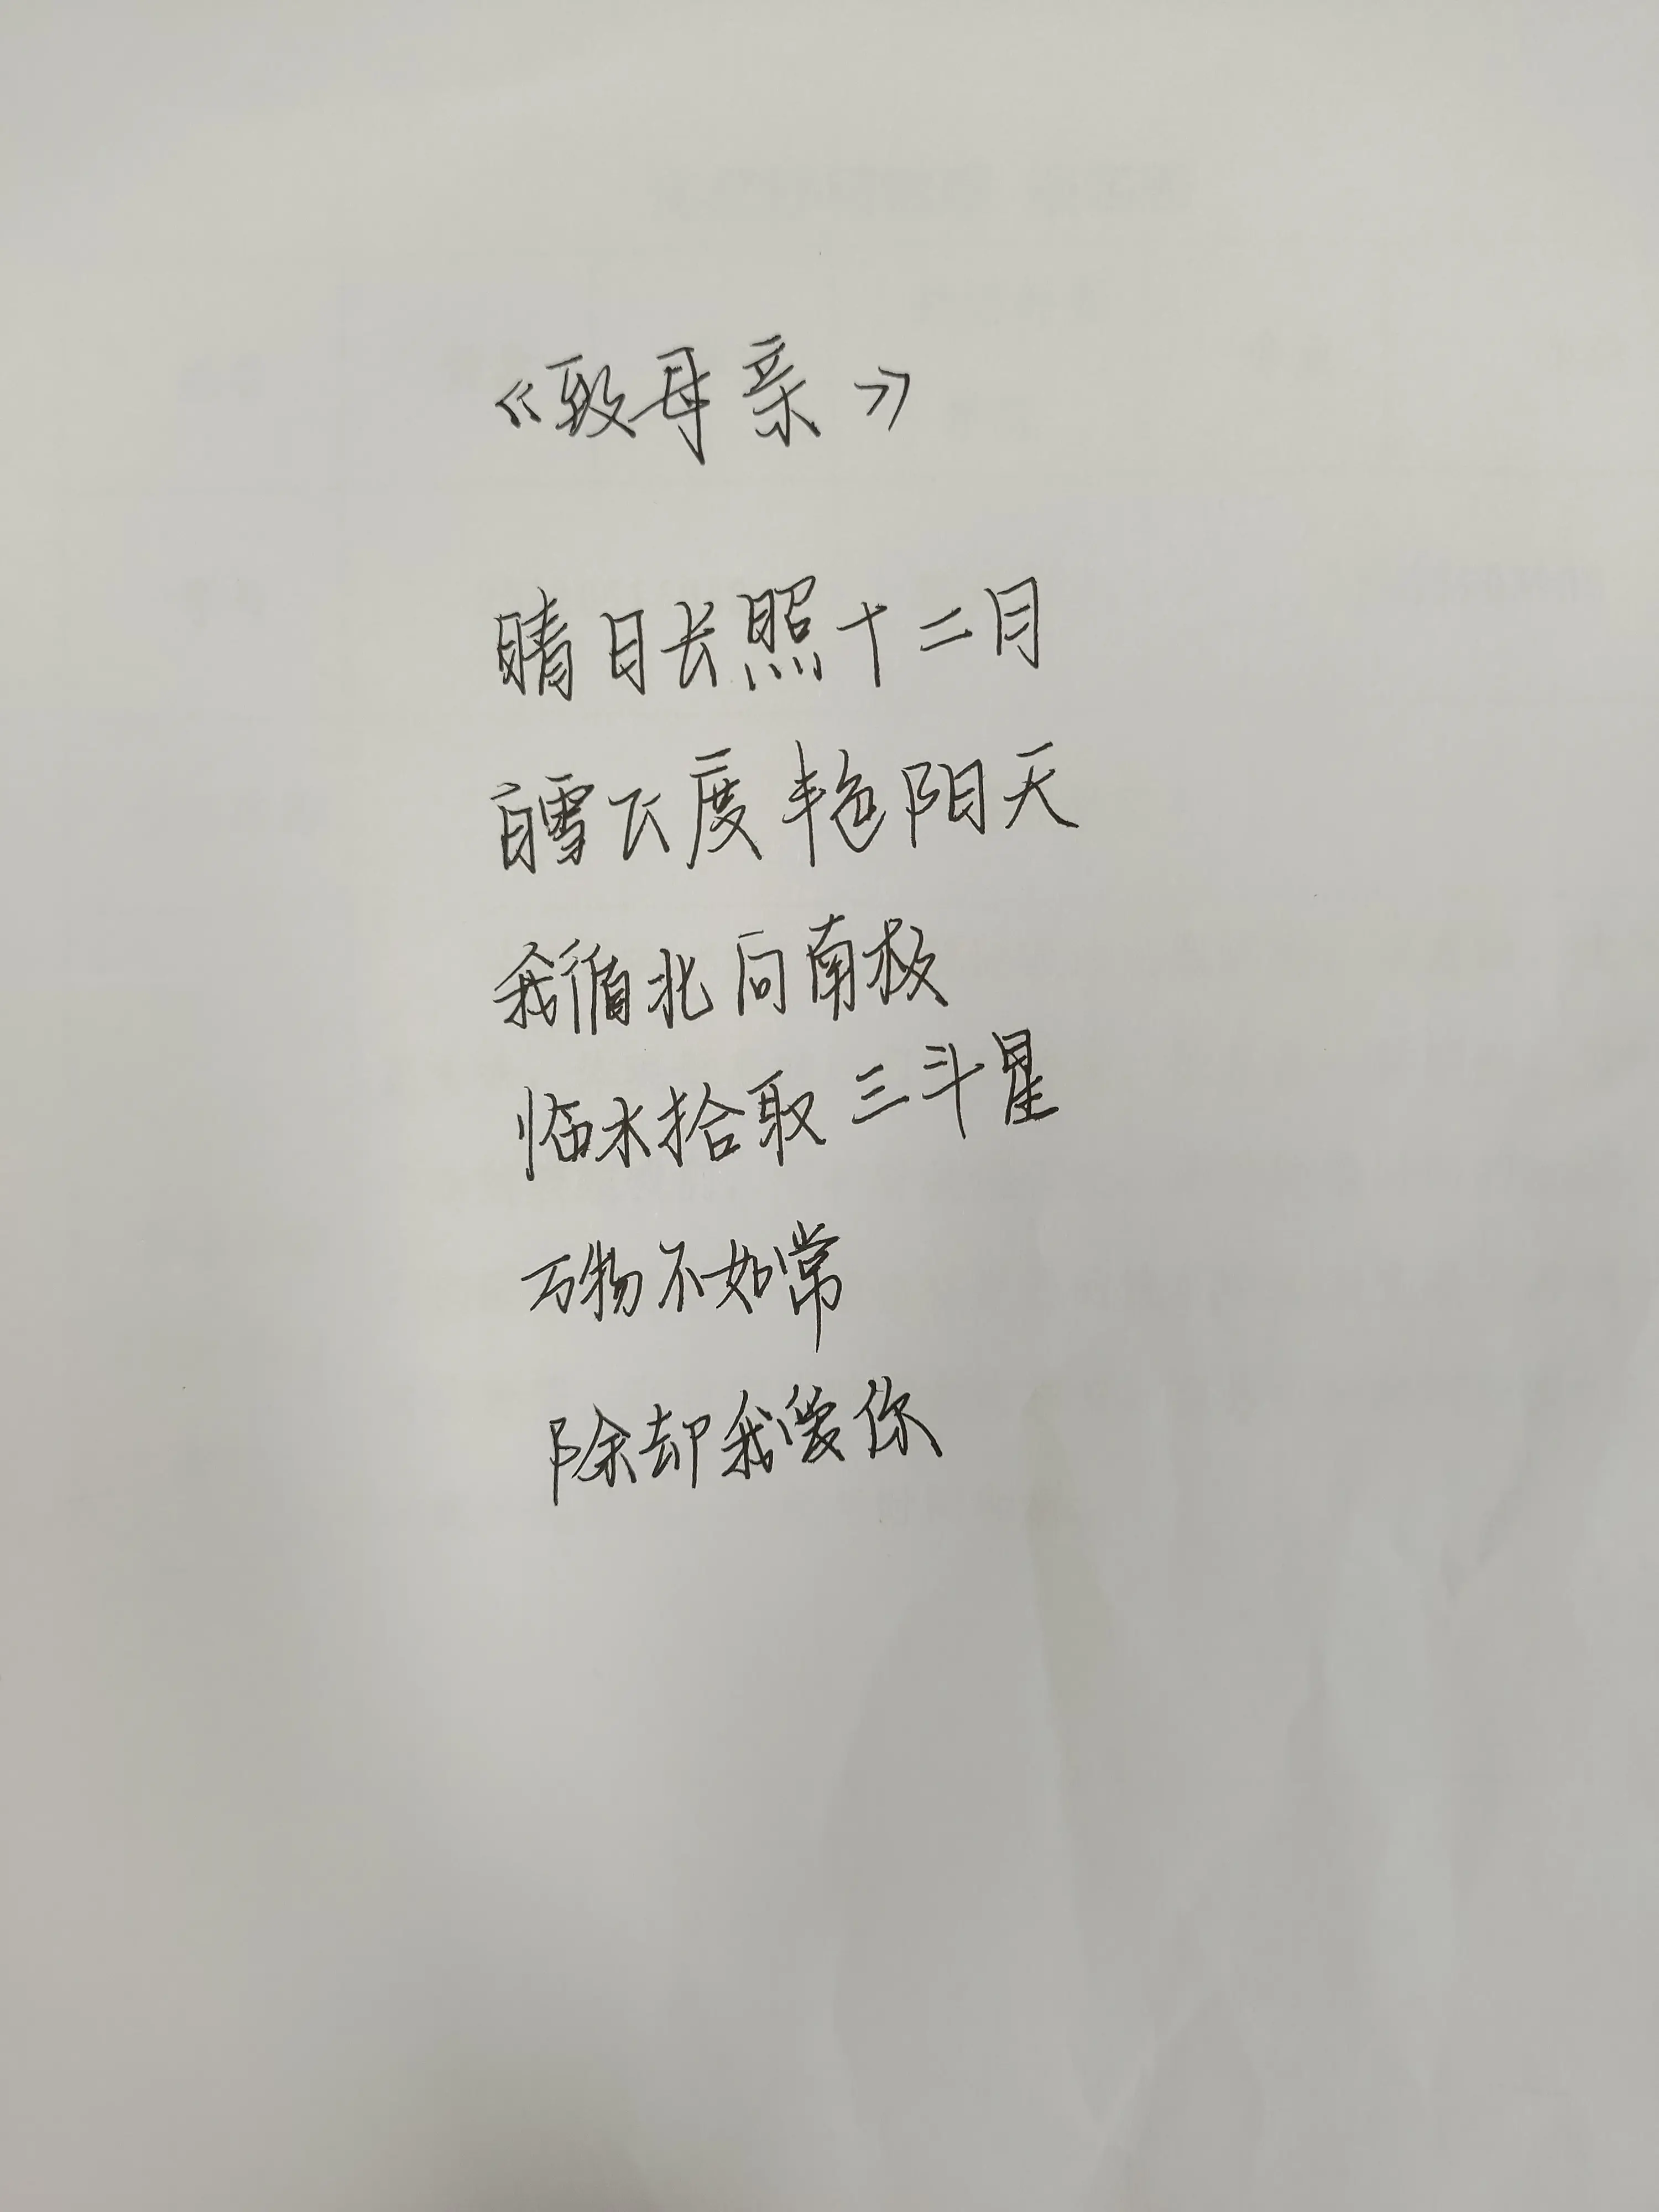 《致母亲》
晴日长照十二月
白雪飞度艳阳天
我循北向南极
临水拾取三斗星
万物不如常
除却我爱你